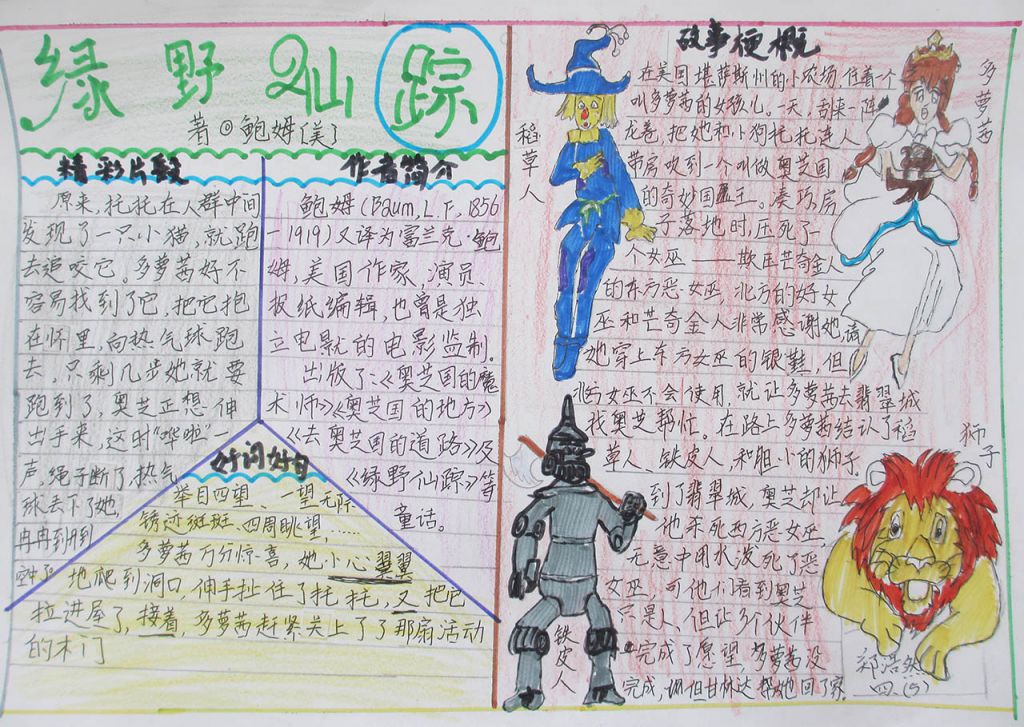 绿野仙踪
著◎鲍姆[美]
精彩片段
原来,托托在人群中间
发现了一只小猫,就跑
去追咬它。多萝茜好不
容易找到了它,把它抱
在怀里,向热气球跑
去。只剩几步她就要
跑到了,奥芝正想伸
出手来,这时"哗啦"一
声,绳子断了,热气
球丢下了她,
冉冉到
作者简介
鲍姆(Baum,L.F,1856
-1919)又译为富兰克·鲍
姆,美国作家,演员、
报纸编辑,也曾是独
立电影的电影监制。
出版了:《奥芝国的魔
术师》《奥芝国的地方》
《去奥芝国的道路》及
《绿野仙踪》等
童话。
好词好句
举目四望、一望无际
锈迹斑斑、四周眺望……
多萝茜万分惊喜,她小心翼翼
地爬到洞口,伸手扯住了托托,又把它
拉进屋了,接着,多萝茜赶紧关上了了那扇活动
的木门
故事梗概
在美国堪萨斯州的小农场,住着一个
叫多萝茜的女孩儿。一天,刮来一阵
龙卷,把她和小狗托托连人
带房吹到一个叫做奥芝国
的奇妙国王。凑巧,房
子落地时,压死了一
个女巫——欺压芒奇金人
的东方恶女巫,北方的好女
巫和芒奇金人非常感谢她,请
她穿上东方女巫的银鞋,但
北方女巫不会使用,就让多萝茜去翡翠城
找奥芝帮忙。在路上多萝茜结认了稻
草人、铁皮人,和胆小的狮子.
到了翡翠城,奥芝却让
他杀死西方恶女巫,
无意中用水泼死了恶
女巫,可他们看到奥芝
只是人,但让3个伙伴
完成了愿望,多萝茜没
完成,但甘林达帮她回了家.
稻草人
多萝茜
狮子
铁皮人
郑浩然
四(5)